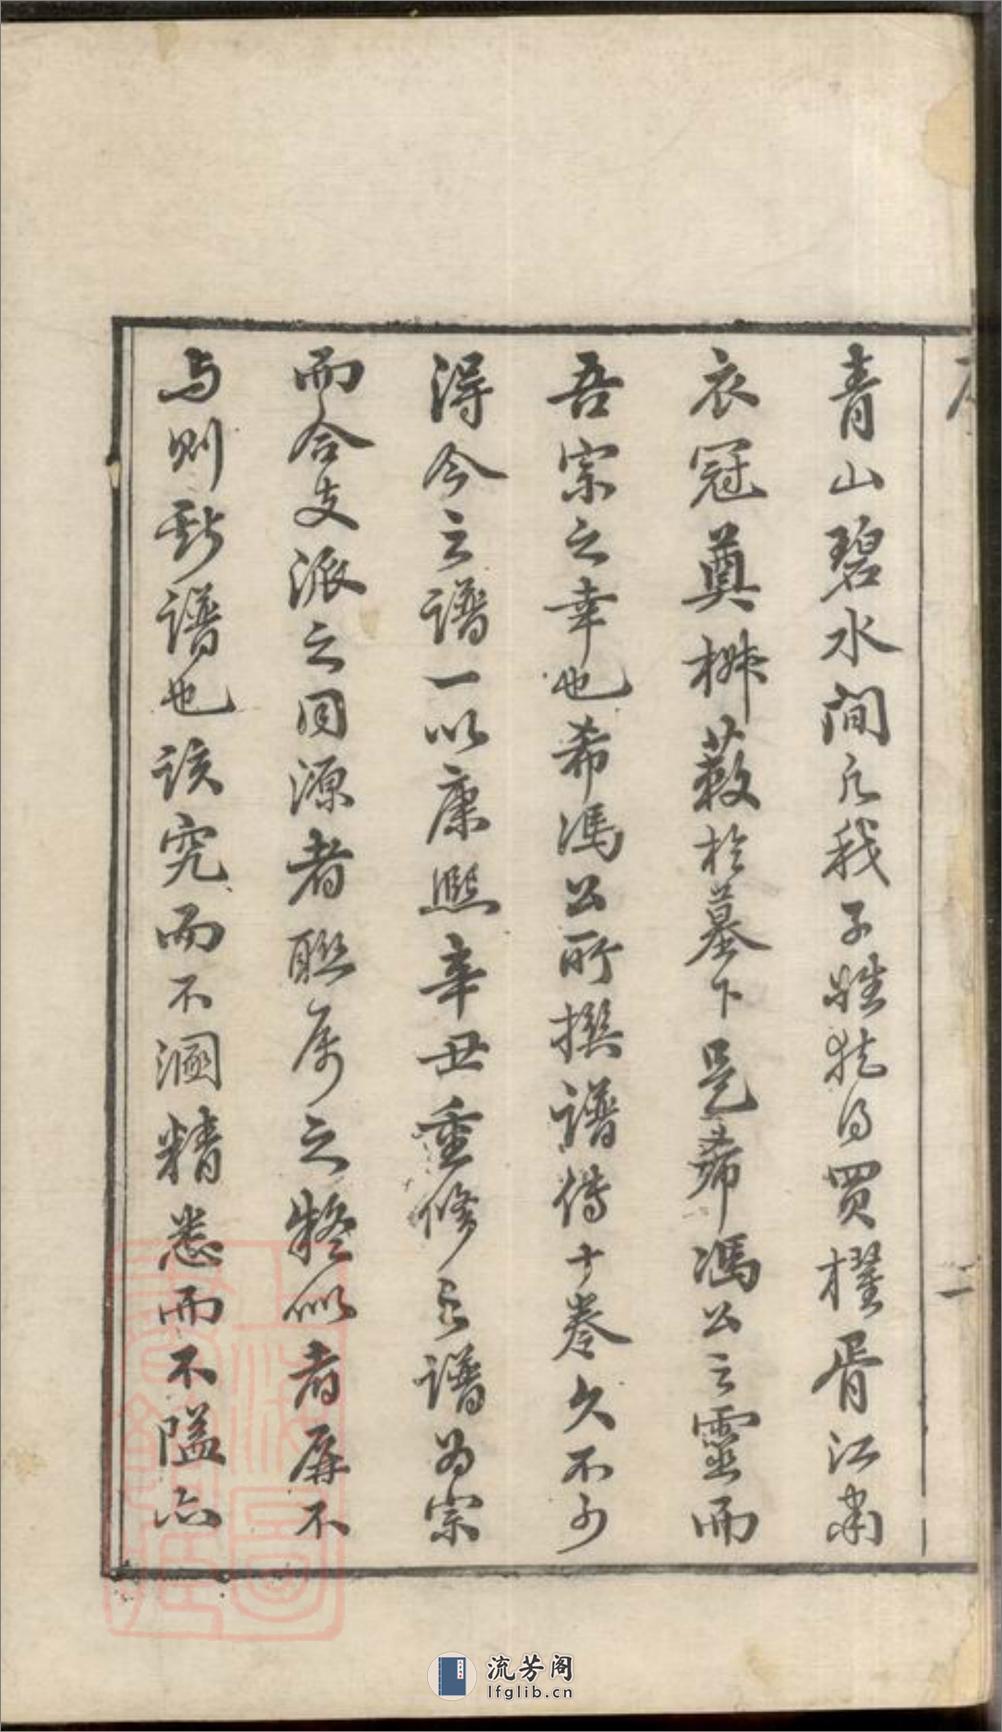 青山碧水間凡我子姓猶得買櫂胥江肅
衣冠奠椒蔌於墓下是希馮公之靈而
吾宗之幸也希馮公所撰譜傳十卷久不可
得今之譜一以康熙辛丑重修之譜為宗
而合支派之同源者聯屬之疑似者屏不
与則新譜也該究而不溷精悉而不隘亦
二
流芳阁
lfglib.cn